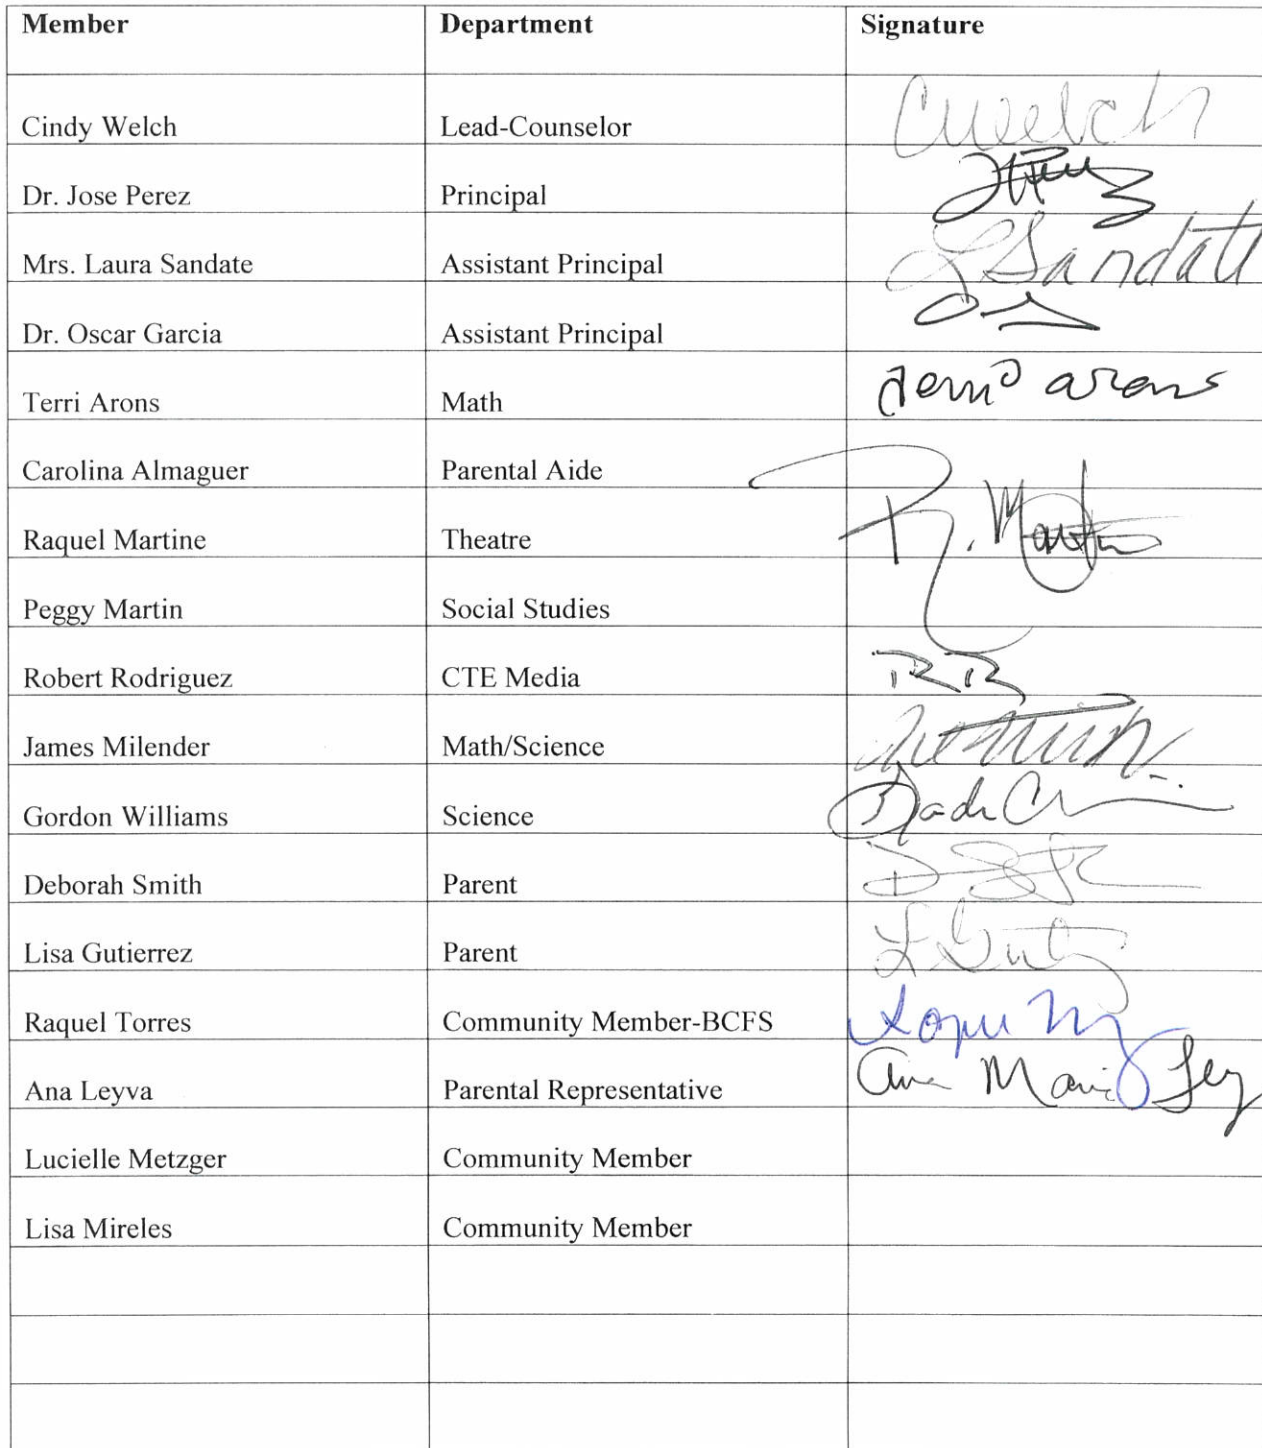 Member Department Signature
Cindy Welch Lead-Counselor CWelch
Dr. Jose Perez Principal
Mrs. Laura Sandate Assistant Principal L Sandate
Dr. Oscar Garcia Assistant Principal
Terri Arons Math Terri Arons
Carolina Almaguer Parental Aide
Raquel Martine Theatre R. Martin
Peggy Martin Social Studies
Robert Rodriguez CTE Media RR
James Milender Math/Science
Gordon Williams Science
Deborah Smith Parent
Lisa Gutierrez Parent
Raquel Torres Community Member-BCFS
Ana Leyva Parental Representative Ana Maria
Lucielle Metzger Community Member
Lisa Mireles Community Member